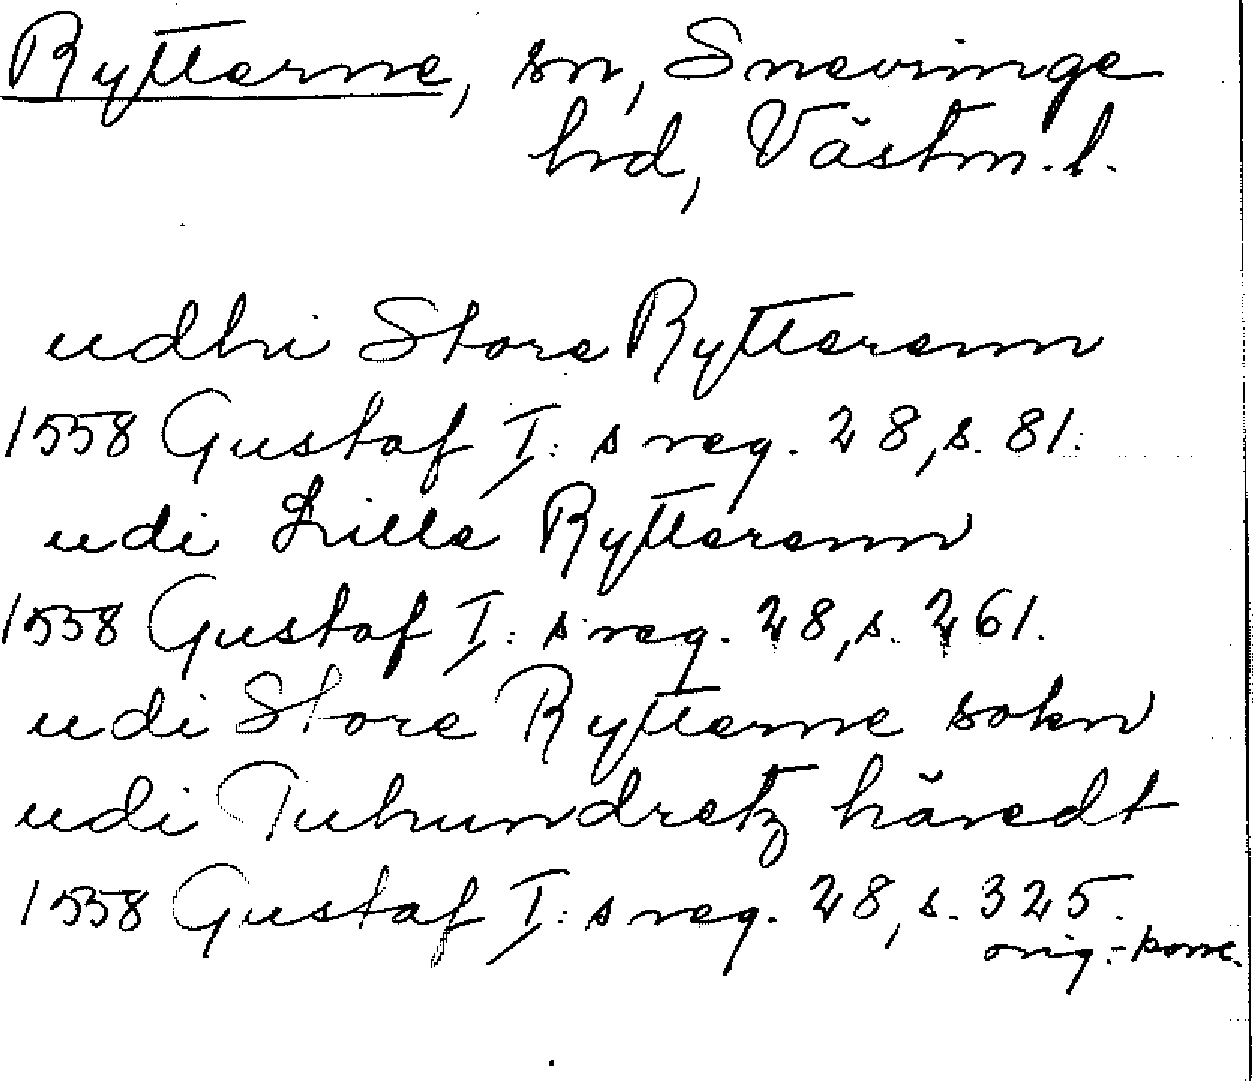 Rytterne, sn, Snevringe
hd, Västm. l.
udhi Store Rytterenn
1558 Gustaf I:s reg. 28, s. 81.
udi Lille Rytterenn
1558 Gustaf I:s reg. 28, s. 261.
udi Store Rytterne sokn
udi Tuhundretz häredt
1558 Gustaf I:s reg. 28, s. 325.
orig.-konc.